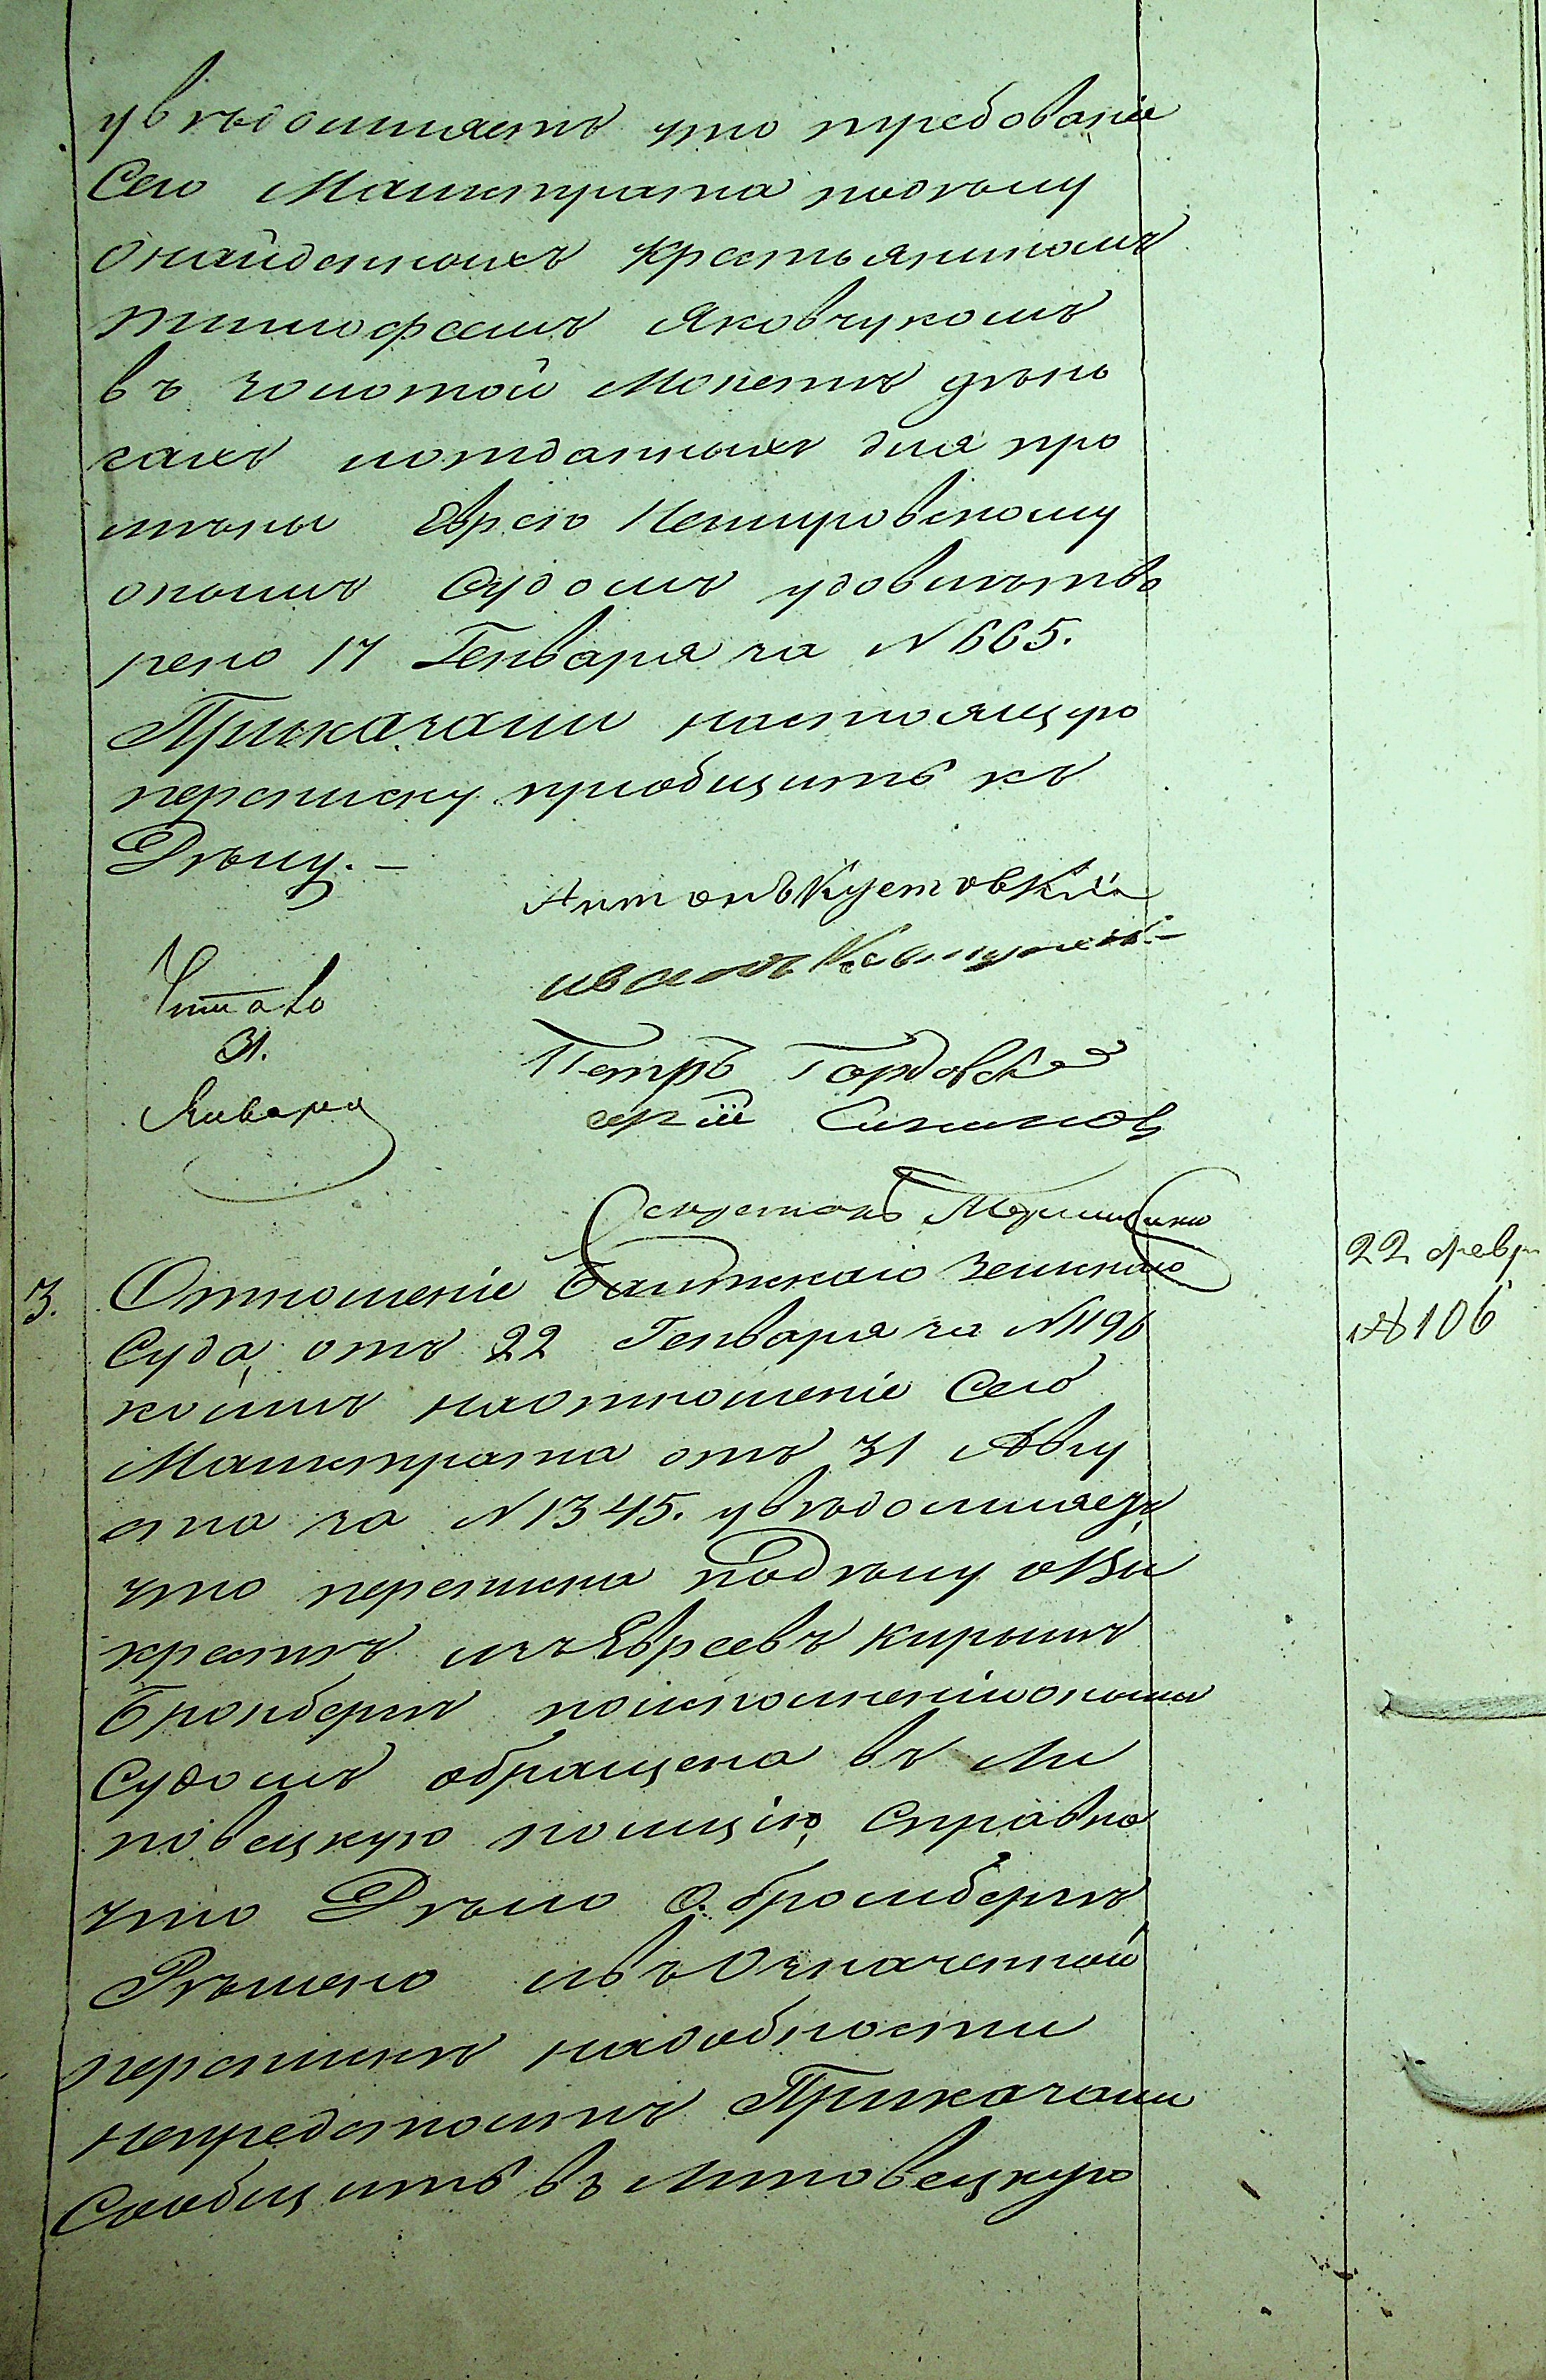 увѣдомляетъ что требованіе
Сего Магистрата подѣлу
онайденныхъ Крестьяниномъ
Тимофеемъ Яковчукомъ
въ золотой Монетѣ день
гахъ иотданныхъ для про
мѣны Еврею Немировскому
онымъ Судомъ удовлетво
рено 17 Генваря за N 665.
Приказали настоящую
переписку приобщить къ
Дѣлу. —
Антонъ Кустовскій
иванъ
Читано
31.
Января
Петръ Гордовскій
сергій Симинов
Секретарь
22 февр
№ 106
3. Отношеніе Балтскаго Земскаго
Суда, отъ 22 Генваря за N 1196
коимъ наотношеніе Сего
Магистрата отъ 31 Авгу
ста за N 1345. увѣдомляетъ,
что переписка подѣлу овы
крестѣ изъ Евреевъ
Бронбергѣ поисполненіи онымъ
Судомъ обращена въ Ли
повецкую полицію, Справка
что Дѣло о бромбергѣ
Рѣшено ивъ Означенной
перепискѣ надобности
непредстоитъ Приказали
Сообщить въ Липовецкую